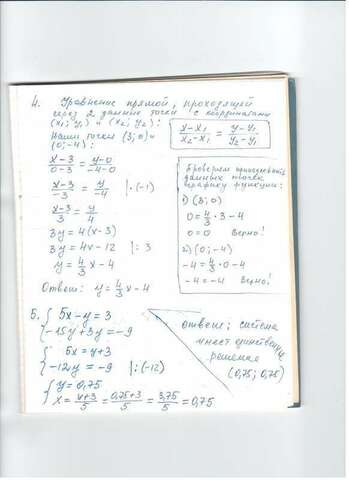 4. Уравнение прямой, проходящей
через 2 данные точки с координатами
(x₁; y₁) и (x₂; y₂):
(x-x₁)/(x₂-x₁) = (y-y₁)/(y₂-y₁)
Наши точки (3; 0) и
(0; -4):
(x-3)/(0-3) = (y-0)/(-4-0)
(x-3)/(-3) = y/(-4) |·(-1)
(x-3)/3 = y/4
3y = 4(x-3)
3y = 4x-12 |: 3
y = 4/3 x - 4
Ответ: y = 4/3 x - 4
Проверяем
данных точек
графику функции:
1) (3; 0)
0 = 4/3 · 3 - 4
0 = 0 Верно!
2) (0; -4)
-4 = 4/3 · 0 - 4
-4 = -4 Верно!
5. { 5x - y = 3
-15y + 3y = -9
{ 5x = y+3
-12y = -9 |: (-12)
{ y = 0,75
x = (y+3)/5 = (0,75+3)/5 = 3,75/5 = 0,75
ответ: система
имеет единственное
решение
(0,75; 0,75)